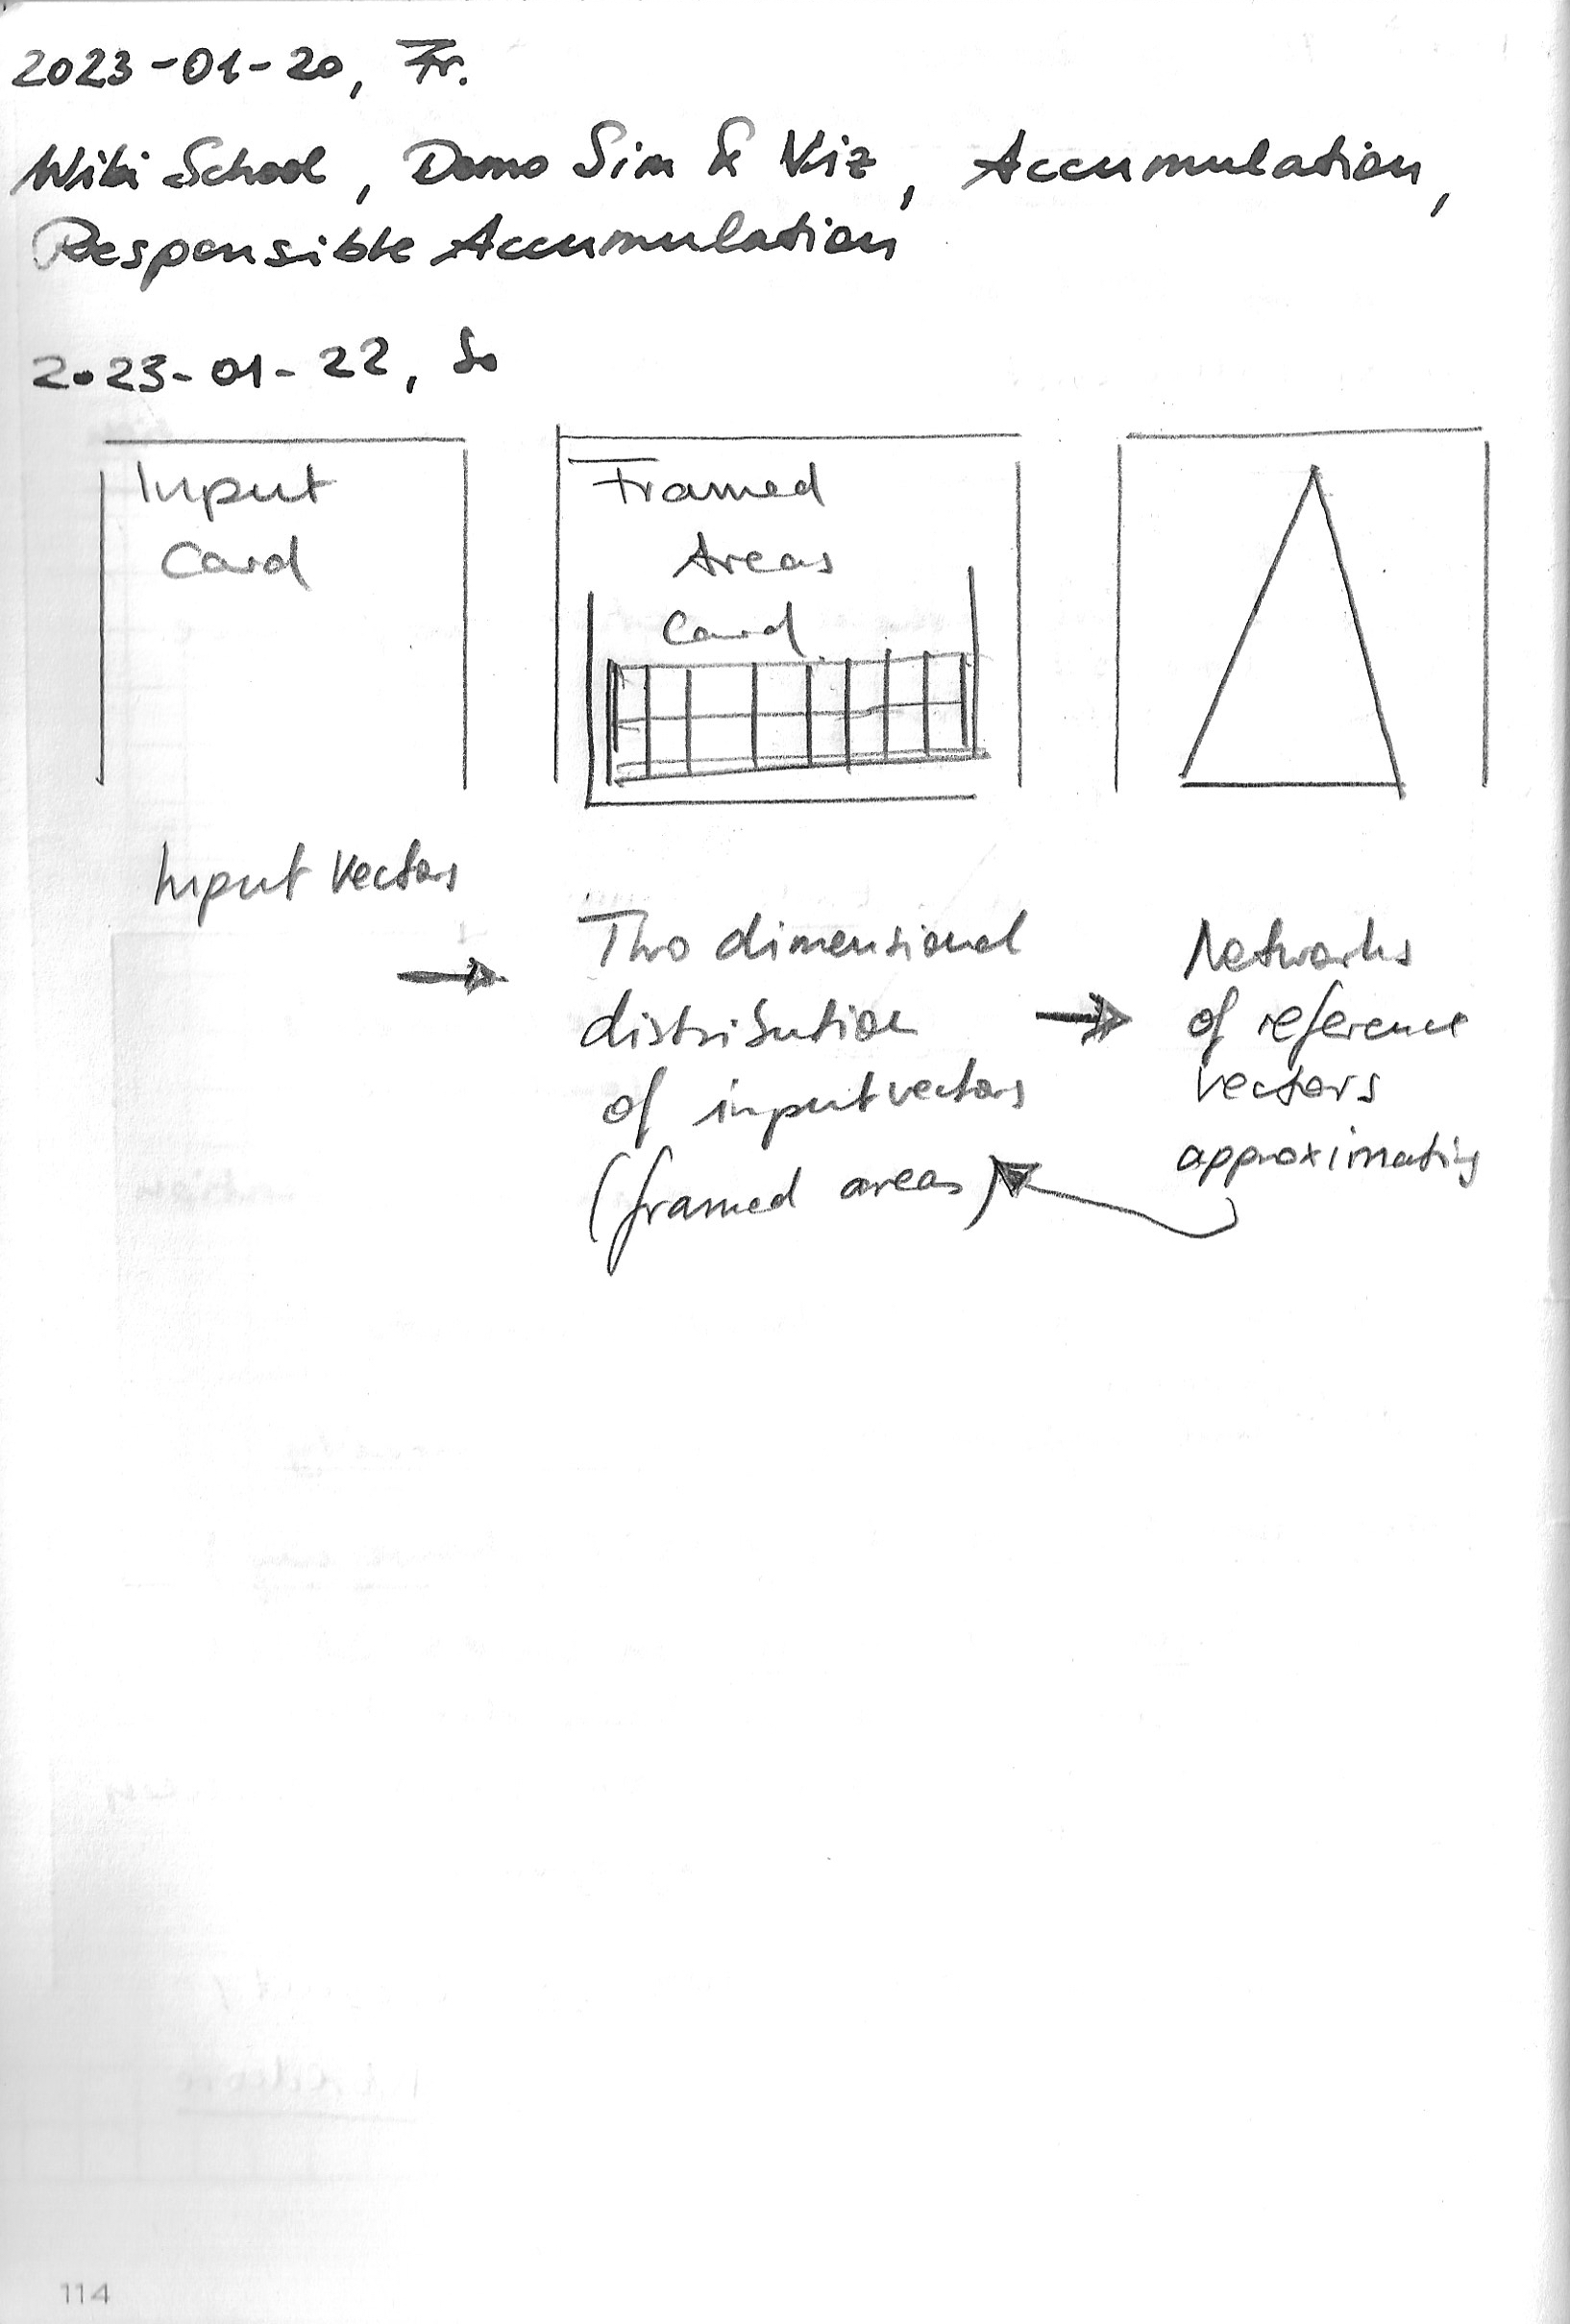 2023-01-20, Fr.
Wiki School, Demo Sim & Viz, Accumulation,
Responsible Accumulation
2023-01-22, So
Input
Card
Framed
Areas
Card
Input vectors
Two dimensional
distribution
of input vectors
(framed areas)
Networks
of reference
vectors
approximating
114